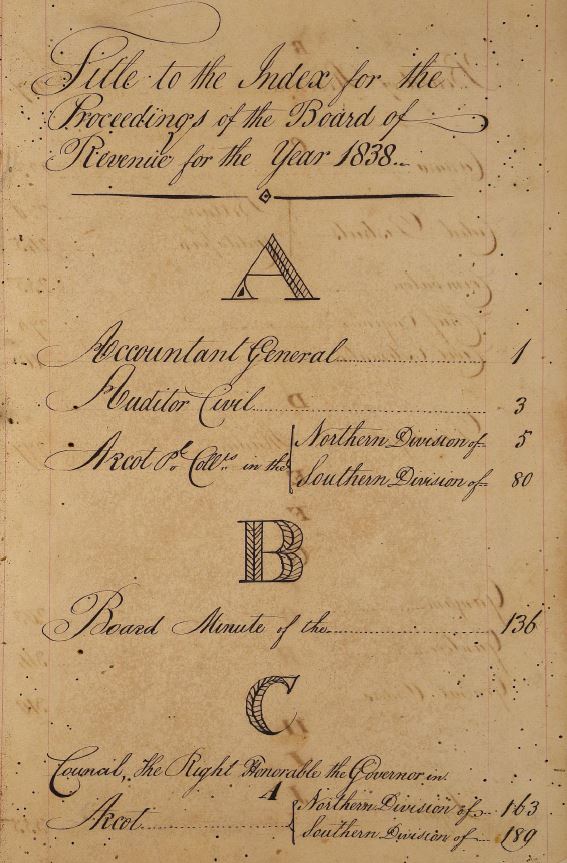 Title to the Index for the
Proceedings of the Board of
Revenue for the Year 1838..
A
Accountant General 1
Auditor Civil 3
Arcot Pl. Collrs in the Northern Division of 5
Southern Division of 80
B
Board Minute of the 136
C
Council, The Right Honorable the Governor in.
A
Arcot Northern Division of 163
Southern Division of 189